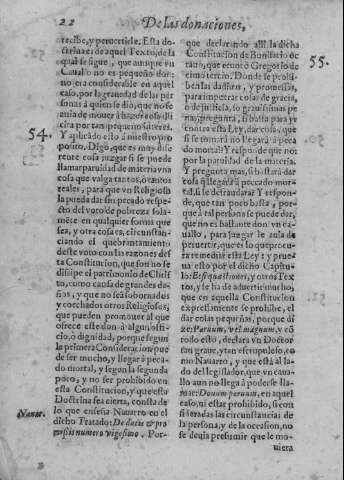 22
De las donaciones,
recibe, y percertirle. Esta do
ctrina es de aquel Texto, de la
qual se sigue, que aunque vn
Cauallo no es pequeño don:
no era considerable en aquel
caso, por la grauedad de las per
sonas à quien se dio, que no se
auia de mouer à hazer cosa
por tan pequeño interes.
54.
Y aplicãdo esto à nuestro pro
posito. Digo, que es muy dife
rente cosa juzgar si se puede
llamar paruidad de materia vna
cosa que valga tantos, ò tantos
reales, para que vn Religioso
la pueda dar sin pecado respe
cto del voto de pobreza sola
mẽte en qualquier forma que
sea, y otra cosa es, circunstan
ciando el quebrantamiento
deste voto con las razones des
ta Constitucion, que son no se
disipe el patrimonio de Chris
to, como causa de grandes da-
ños, y que no sea sobornados
y cochados otros Religiosos,
que pueden promouer al que
ofrece este don à algun offi-
cio, ò dignidad, porque segun
la primera Consideracion pue
de ser mucho, y llegar à peca
do mortal, y segun la segunda
poco, y no ser prohibido en
esta Constitucion, y que esta
Doctrina sea cierta, consta de
lo que enseña Nauarro en el
Nauar.
dicho Tratado: De datis & pro
missis numero vigesimo. Por-
que declarando alli la dicha
Constitucion de Bonifacio oc
tauo, que renouò Gregorio de
cimo tercio. Donde se prohi-
55.
ben las dadiuas, y promessas,
para impetrar cosas de gracia,
ò de justicia, so grauissimas pe
nas, pregunta, si basta para yr
contra esta Ley, dar cosa, que
si se tomara no llegara à peca
do mortal? Y responde que no:
por la paruidad de la materia.
Y pregunta mas, si bastarà dar
cosa q̃ llegara à peccado mor-
tal, si se defraudara? Y respon-
de, que tan poco basta, por-
que à tal persona se puede dar,
que no es bastante don vn ca-
uallo, para juzgar le auia de
peruertir, que es lo que procu
ra remediar esta Ley: y prue-
ua esto por el dicho Capitu-
lo: Et si quæstiones, y otros Tex
tos, y se ha de aduertir mucho,
que en aquella Constitucion
expressamente se prohibe, el
dar cosas pequeñas, porque di
ze: Paruum, vel magnum, y cõ
todo esto, declara vn Doctor
tan graue, y tan escrupuloso, co
mo Nauarro, y que està al la-
do del legislador, que vn caua
llo aun no llega à poderse lla-
mar: Donum paruum, en aquel
caso, ni estar prohibido, si con
sideradas las circunstancias de
la persona, y de la occasion, no
se deuia presumir que le mo-
uiera